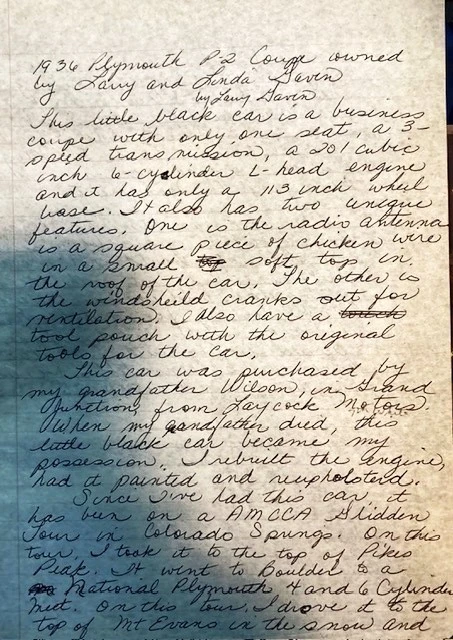 1936 Plymouth P2 Coupe owned
by Larry and Linda Gavin
by Larry Gavin
This little black car is a business
coupe with only one seat, a 3-
speed transmission, a 201 cubic
inch 6-cylinder L-head engine
and it has only a 113 inch wheel
base. It also has two unique
features. One is the radio antenna
is a square piece of chicken wire
in a small soft top in
the roof of the car. The other is
the windsheild cranks out for
ventilation. I also have a
tool pouch with the original
tools for the car.
This car was purchased by
my grandfather Wilson, in Grand
Junction, from Laycock Motors.
When my grandfather died, this
little black car became my
possession. I rebuilt the engine,
had it painted and reupholsterd.
Since I've had this car, it
has been on a AMCCA Glidden
Tour in Colorado Springs. On this
tour, I took it to the top of Pikes
Peak. It went to Boulder to a
National Plymouth 4 and 6 Cylinder
meet. On this tour, I drove it to the
top of Mt Evans in the snow and